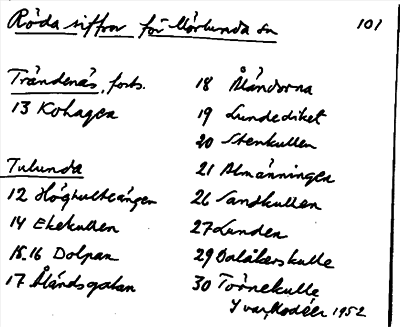 Röda siffror för Mörlunda sn 101
Trändenäs, forts.
13 Kohagen
Tulunda
12 Höghultsängen
14 Ekekullen
15.16 Dolpan
17 Åländsgatan
18 Åländorna
19 Lundediket
20 Stenkullen
21 Almänningen
26 Sandkullen
27 Lunden
29 Balåkerskulle
30 Törnekulle
Yvar Modéer 1952